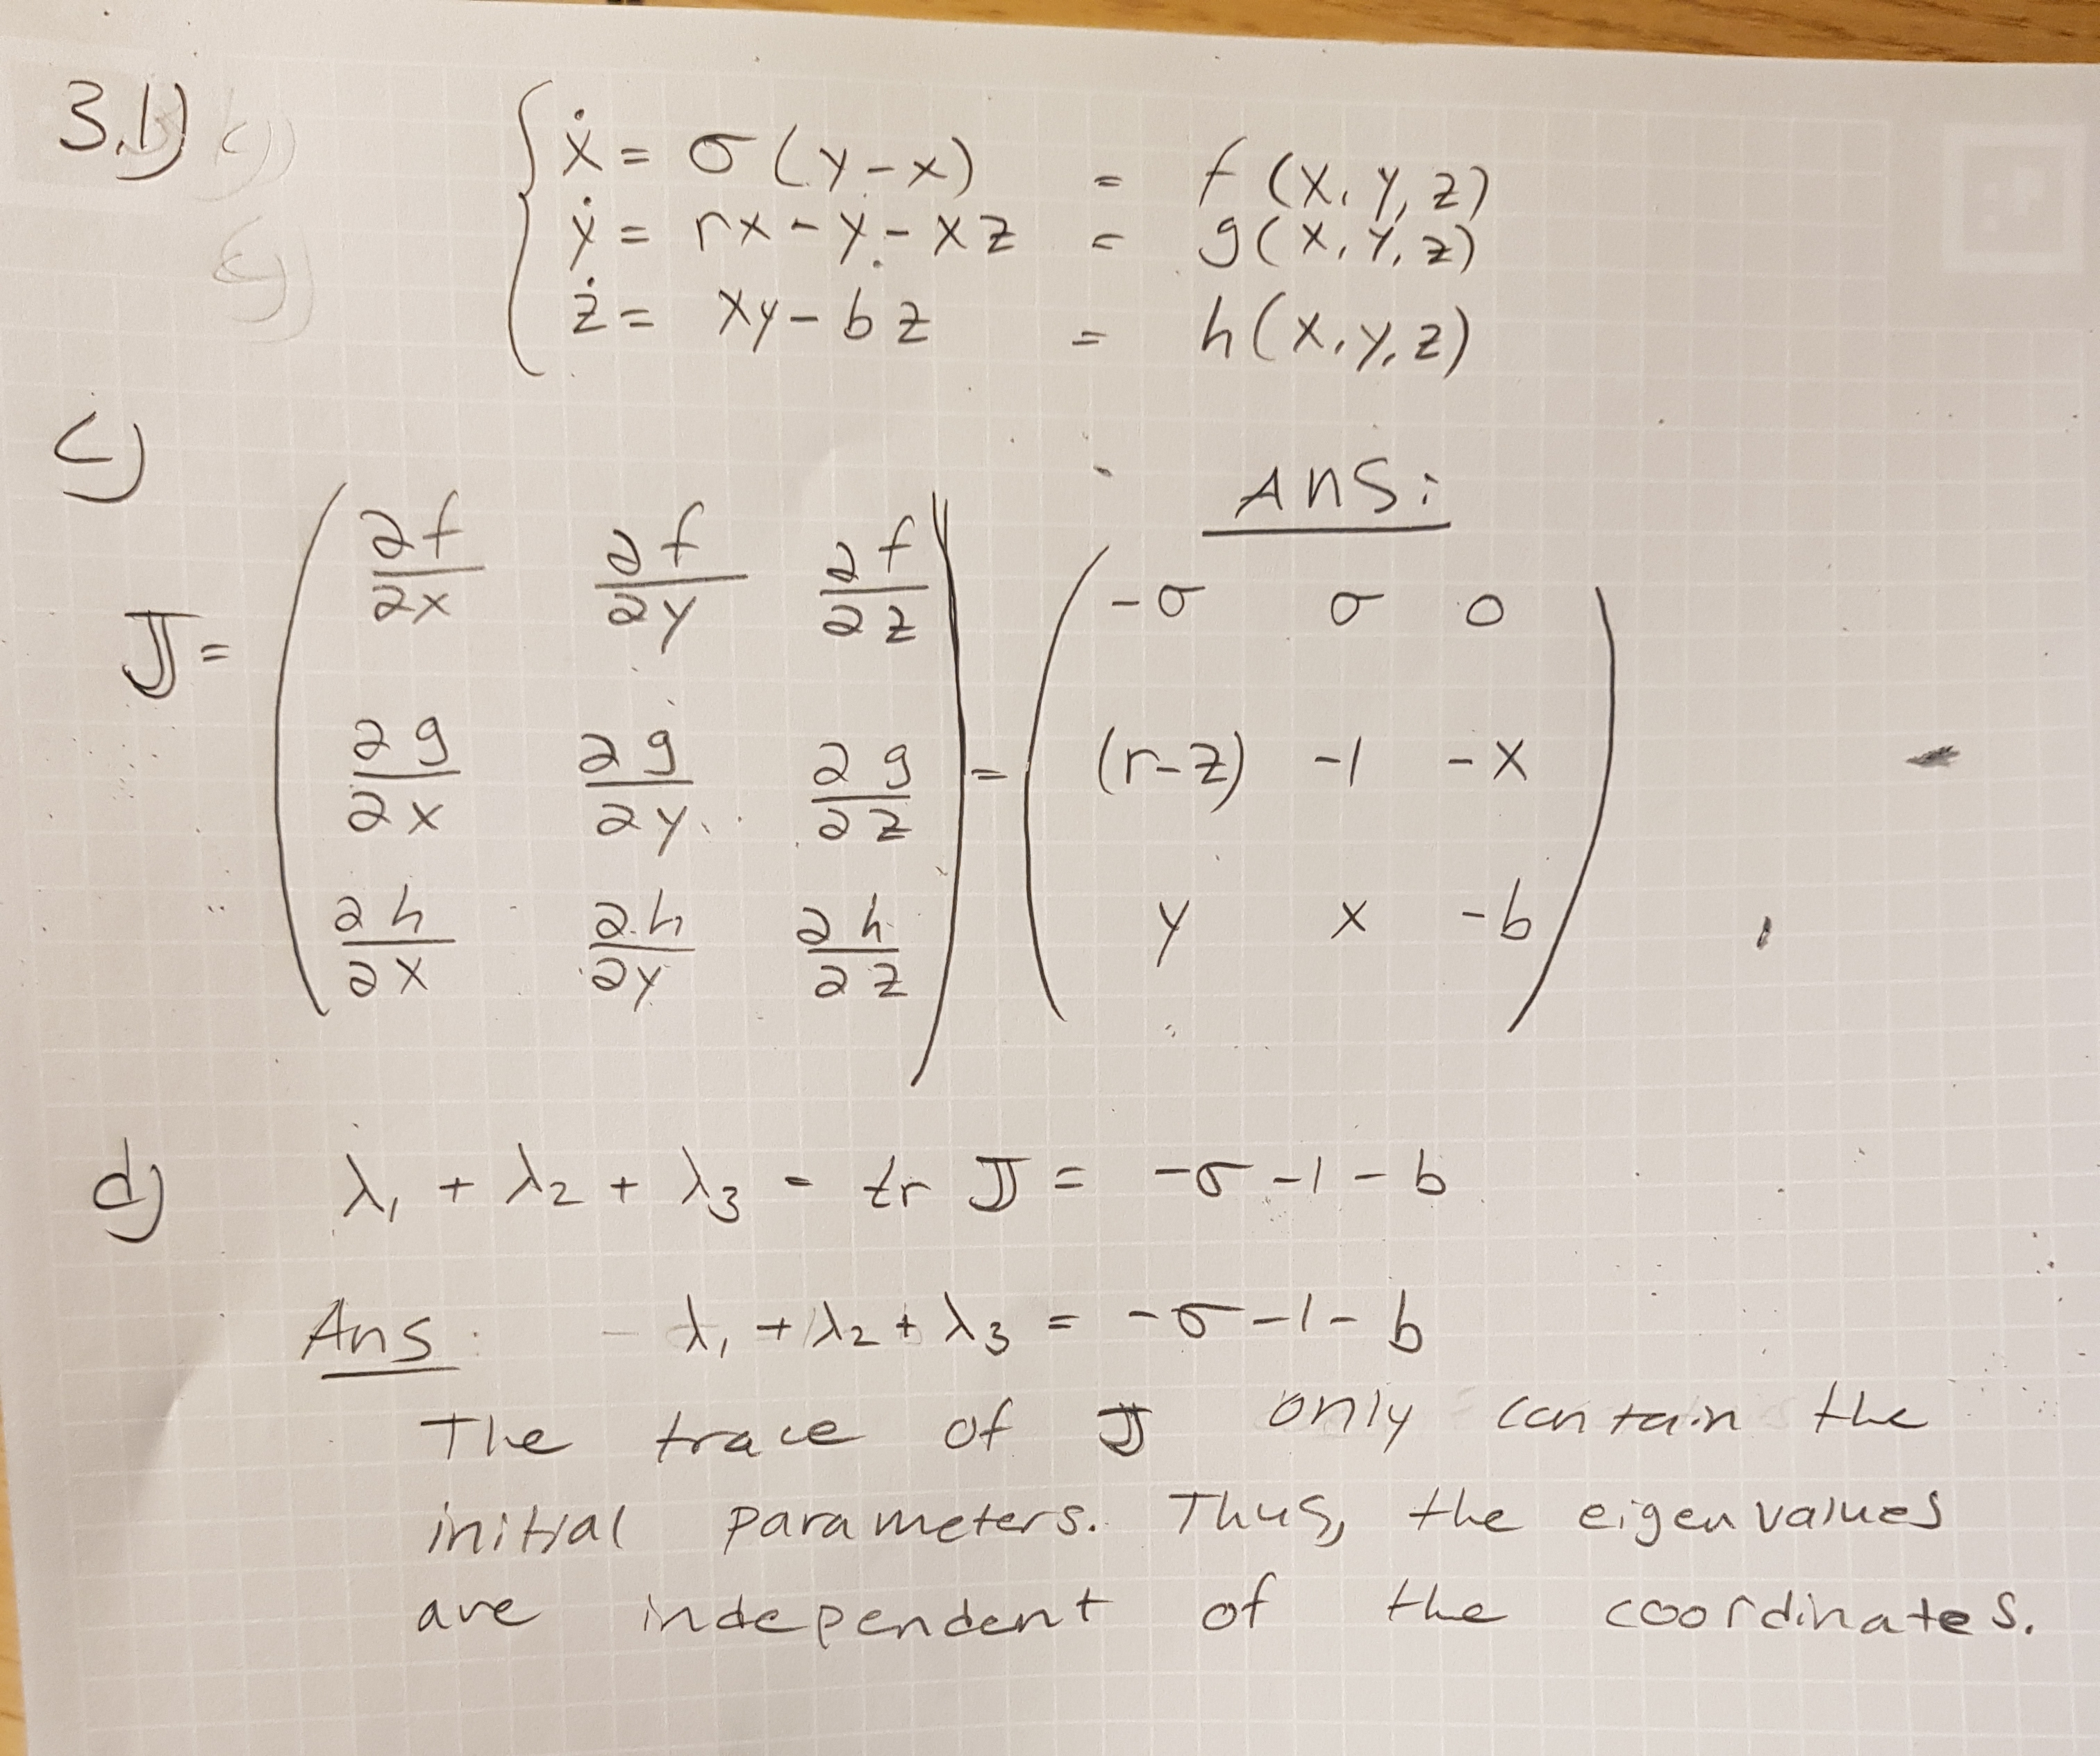 3.1)
ẋ = σ(y-x) = f(x,y,z)
ẏ = rx-y-xz = g(x,y,z)
ż = xy-bz = h(x,y,z)
c)
Ans:
J = ( ∂f/∂x ∂f/∂y ∂f/∂z ) = ( -σ σ 0 )
( ∂g/∂x ∂g/∂y ∂g/∂z ) ( (r-z) -1 -x )
( ∂h/∂x ∂h/∂y ∂h/∂z ) ( y x -b )
d) λ₁ + λ₂ + λ₃ = tr J = -σ-1-b
Ans: λ₁ + λ₂ + λ₃ = -σ-1-b
The trace of J only contain the
initial parameters. Thus, the eigenvalues
are independent of the coordinates.